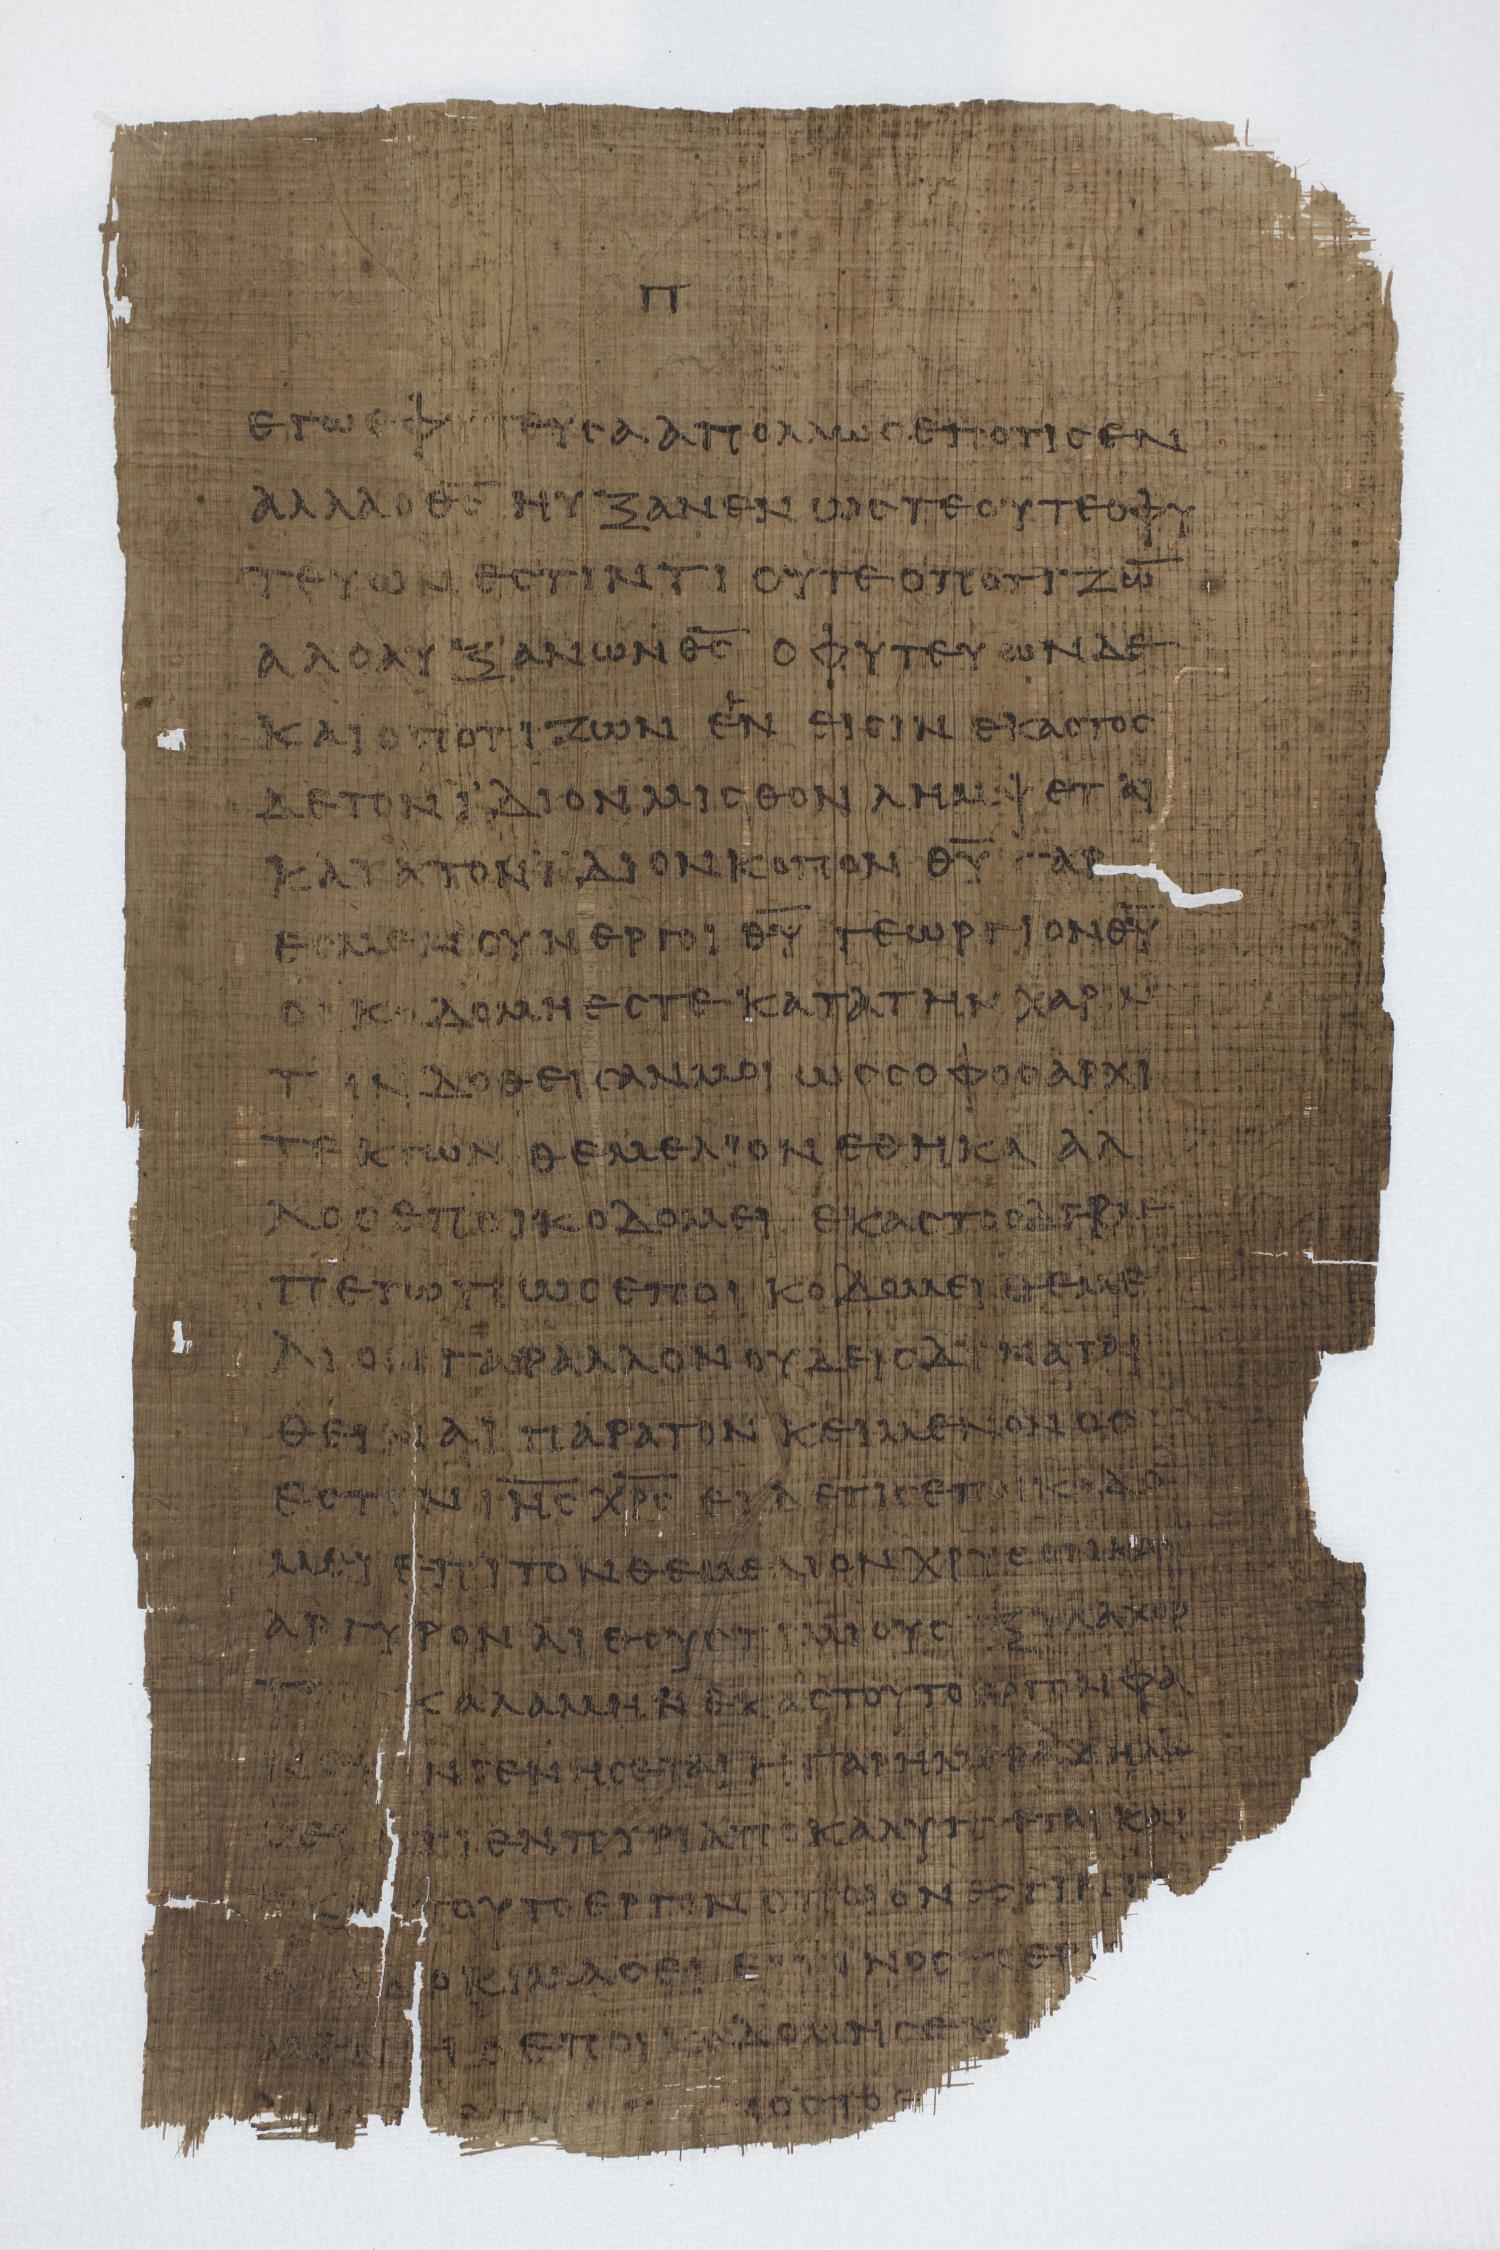 π
εγωεφυτευσααπολλωσεποτισεν
αλλαοθ̅ς̅ηυξανενωστεουτεοφυ
τευωνεστιντιουτεοποτιζω̅
αλοαυξανωνθ̅ς̅οφυτευωνδε
καιοποτιζωνενεισινεκαστος
δετονϊδιονμισθονλημψεται
κατατονϊδιονκοπονθ̅υ̅γαρ
εσμενσυνεργοιθ̅υ̅γεωργιονθ̅υ̅
οικοδομηεστεκατατηνχαριν
τηνδοθεισανμοιωσσοφοσαρχι
τεκτωνθεμελϊονεθηκααλ
λοσεποικοδομειεκαστοσδε
πετωπωσεποικοδομειθεμε
λιονγαραλλονουδεισδυναται
θειναιπαρατονκειμενονος
εστινι̅η̅ς̅χ̅ρ̅ς̅ειδετισεποικοδο
μειεπιτονθεμελιονχρυσιονκαι
αργυρονλιθουστιμιουσξυλαχορ
τονκαλαμηνεκαστουτοεργονφα
νερονγενησεταιηγαρημεραδηλω
σειοτιενπυριαποκαλυπτεταικαι
εκαστουτοεργονοποιονεστιντο
δοκιμασειειτινοστοερ
μενειοεποικοδομησε